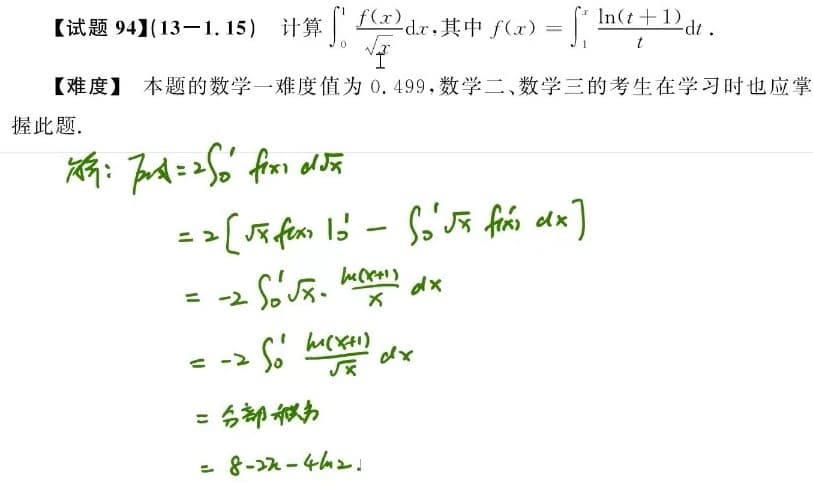 【试题 94】(13—1.15) 计算∫₀¹ f(x)/√x dx,其中 f(x) = ∫₁ˣ ln(t+1)/t dt.
【难度】 本题的数学一难度值为 0.499,数学二、数学三的考生在学习时也应掌
握此题.
解: 原式=2∫₀¹ f(x) d√x
= 2[√x f(x) |₀¹ − ∫₀¹ √x f'(x) dx]
= -2 ∫₀¹ √x · ln(x+1)/x dx
= -2 ∫₀¹ ln(x+1)/√x dx
= 分部积分
= 8-2π-4ln2.